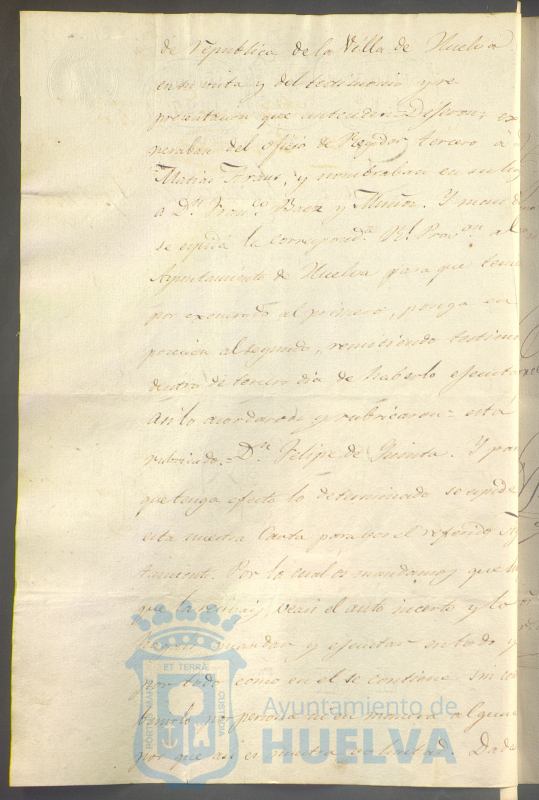 de republica de la Villa de Huelva
en su vista y del testimonio y re
presentacion que antecede = Dijeron; ex
oneraban del oficio de Regidor tercero á
Matias Franc, y nombraban en su lug
a Dn. Franco. Baez y Muñoz. Y man
se espida la correspondte. Rl. Proon. al
Ayuntamiento de Huelva para que tenie
por exonerado al primero, ponga en
posesion al segundo, remitiendo testimo
dentro de tercero dia de haberlo ejecuta
asi lo acordaron y rubricaron = está
rubricado. = Dn. Felipe de Quinta. Y para
que tenga efecto lo determinado se espide
esta nuestra Carta para vos el referido
tamiento. Por lo cual os mandamos que
que la recivais, veais el auto incerto y lo
mandar y ejecutar en todo y
por todo como en el se contiene sin
persona ni en manera alguna
por que asi es nuestra voluntad. Dada
ET TERRÆ
PORTUS MARIS
CUSTODIA
Ayuntamiento de
HUELVA